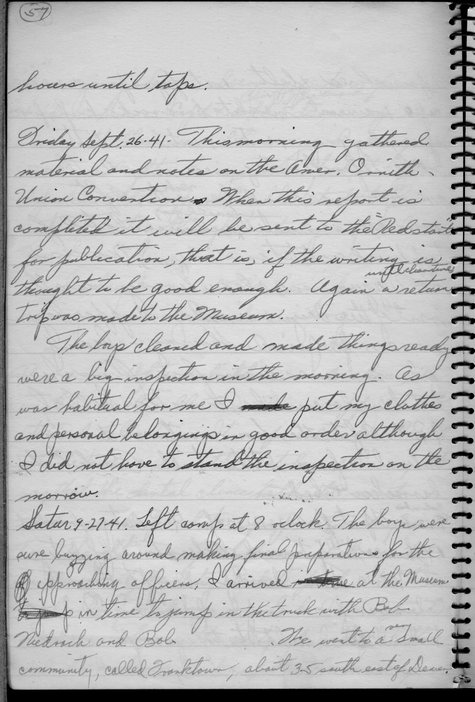 57
hours until taps.
Friday Sept, 26-41- This morning gathered
material and notes on the Amer. Ornith.
Union Convention. When this report is
completed it will be sent to the "Red start"
for publication, that is, if the writing is
thought to be good enough. Again a return
trip was made to the Museum.
The boys cleaned and made things ready
were a big inspection in the morning. As
was habitual for me I made put my clothes
and personal belongings in good order although
I did not have to stand the inspection on the
morrow.
Satur 9-27-41. Left camp at 8 oclock. The boys were
sure buzzing around making final preparations for the
approaching officers. I arrived at the Museum
in time to jump in the truck with Bob
Niedrach and Bob We went to a very small
community, called Franktown, about 35 south east of Denver